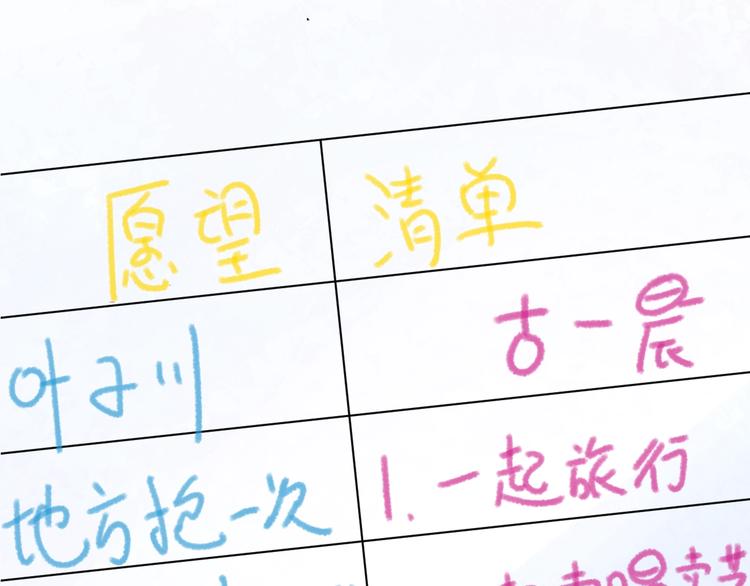 愿望 清单
叶子川 古一晨
地方抱一次 1.一起旅行